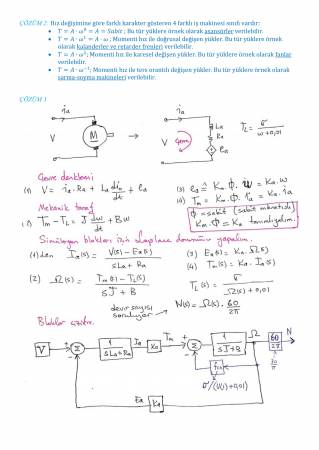 ÇÖZÜM 2: Hız değişimine göre farklı karakter gösteren 4 farklı iş makinesi sınıfı vardır:
• T = A · ω⁰ = A = Sabit ; Bu tür yüklere örnek olarak asansörler verilebilir.
• T = A · ω¹ = A · ω ; Momenti hız ile doğrusal değişen yükler. Bu tür yüklere örnek
olarak kalanderler ve retarder frenleri verilebilir.
• T = A · ω²; Momenti hız ile karesel değişen yükler. Bu tür yüklere örnek olarak fanlar
verilebilir.
• T = A · ω⁻¹; Momenti hız ile ters orantılı değişen yükler. Bu tür yüklere örnek olarak
sarma-soyma makineleri verilebilir.
ÇÖZÜM 3
ia
V
M
ia
V
Çevre
La
Ra
ea
TL = σ / (ω + 0,01)
Çevre denklemi
(1) V = ia . Ra + La dia/dt + ea
(3) ea = Ka . Φ . ω = Ka . ω
(4) Tm = Ka . Φ . ia = Ka . ia
Mekanik taraf
Tm - TL = J dω/dt + Bω
Φ = sabit (sabit mıknatıslı)
Ka . Φ = Ka tanımlayalım.
Simülasyon blokları için Laplace dönümü yapalım.
(1) den Ia(s) = (V(s) - Ea(s)) / (sLa + Ra)
(3) Ea(s) = Ka . Ω(s)
(4) Tm(s) = Ka . Ia(s)
(2) Ω(s) = (Tm(s) - TL(s)) / (sJ + B)
TL(s) = σ / (Ω(s) + 0,01)
devir sayısı
soruluyor
N(s) = Ω(s) . 60/2π
Bloklar çizilir.
V
Σ
1 / (sLa + Ra)
Ia
Ka
Tm
Σ
1 / (sJ + B)
Ω
60/2π
N
f(u)
σ / (u(1) + 0,01)
Ea
Ka